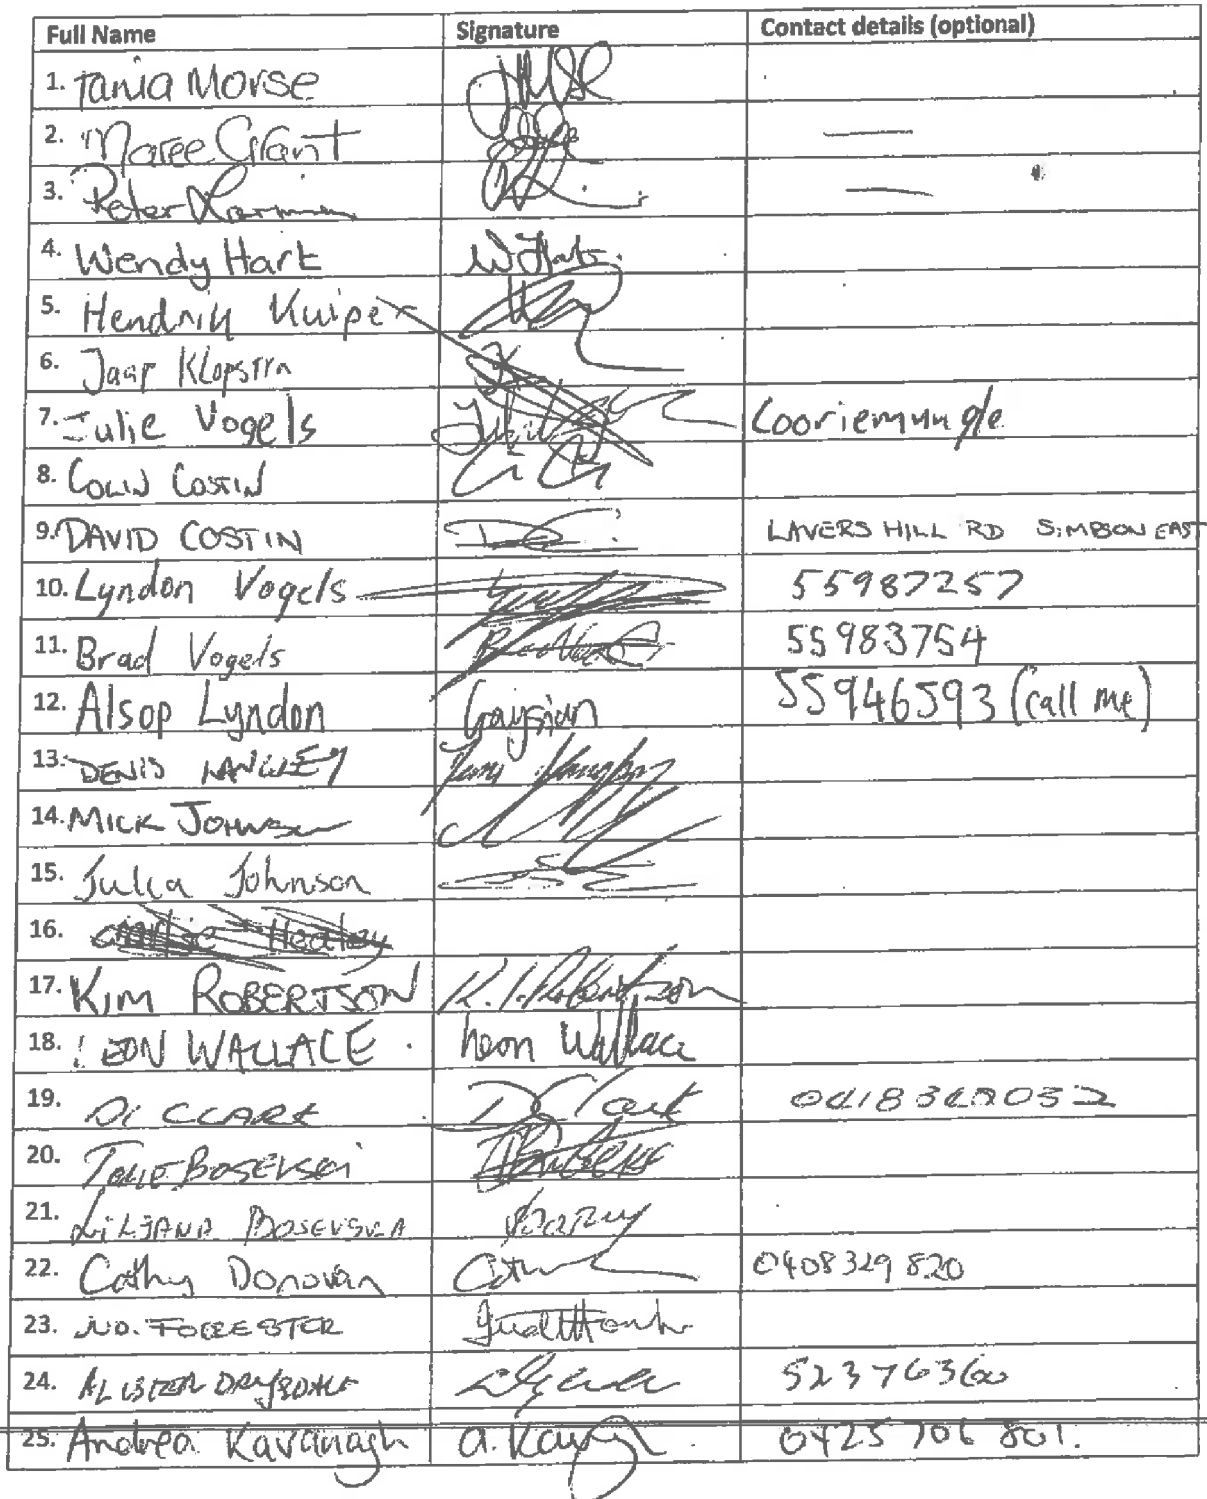 Full Name Signature Contact details (optional)
1. Tania Morse
2. Maree Grant —
3. Peter —
4. Wendy Hart W Hart.
5. Hendrik Kuiper
6. Jaap Klopstra
7. Julie Vogels Cooriemungle
8. COLIN COSTIN
9. DAVID COSTIN LAVERS HILL RD SIMPSON EAST
10. Lyndon Vogels 55987257
11. Brad Vogels 55983754
12. Alsop Lyndon 55946593 (call me)
13. DENIS LANGLEY
14. MICK JOHNSON
15. Julia Johnson
16.
17. KIM ROBERTSON K. I. Robertson
18. LEON WALLACE. Leon Wallace
19. DI CLARK D Clark
20. BOSEVSKI
21. LILJANA BOSEVSKA
22. Cathy Donovan 0408329820
23. JUD. FORRESTER
24. ALISTER DRYSDALE 52376360
25. Andrea Kavanagh a. Kavagh 0425 706 801.